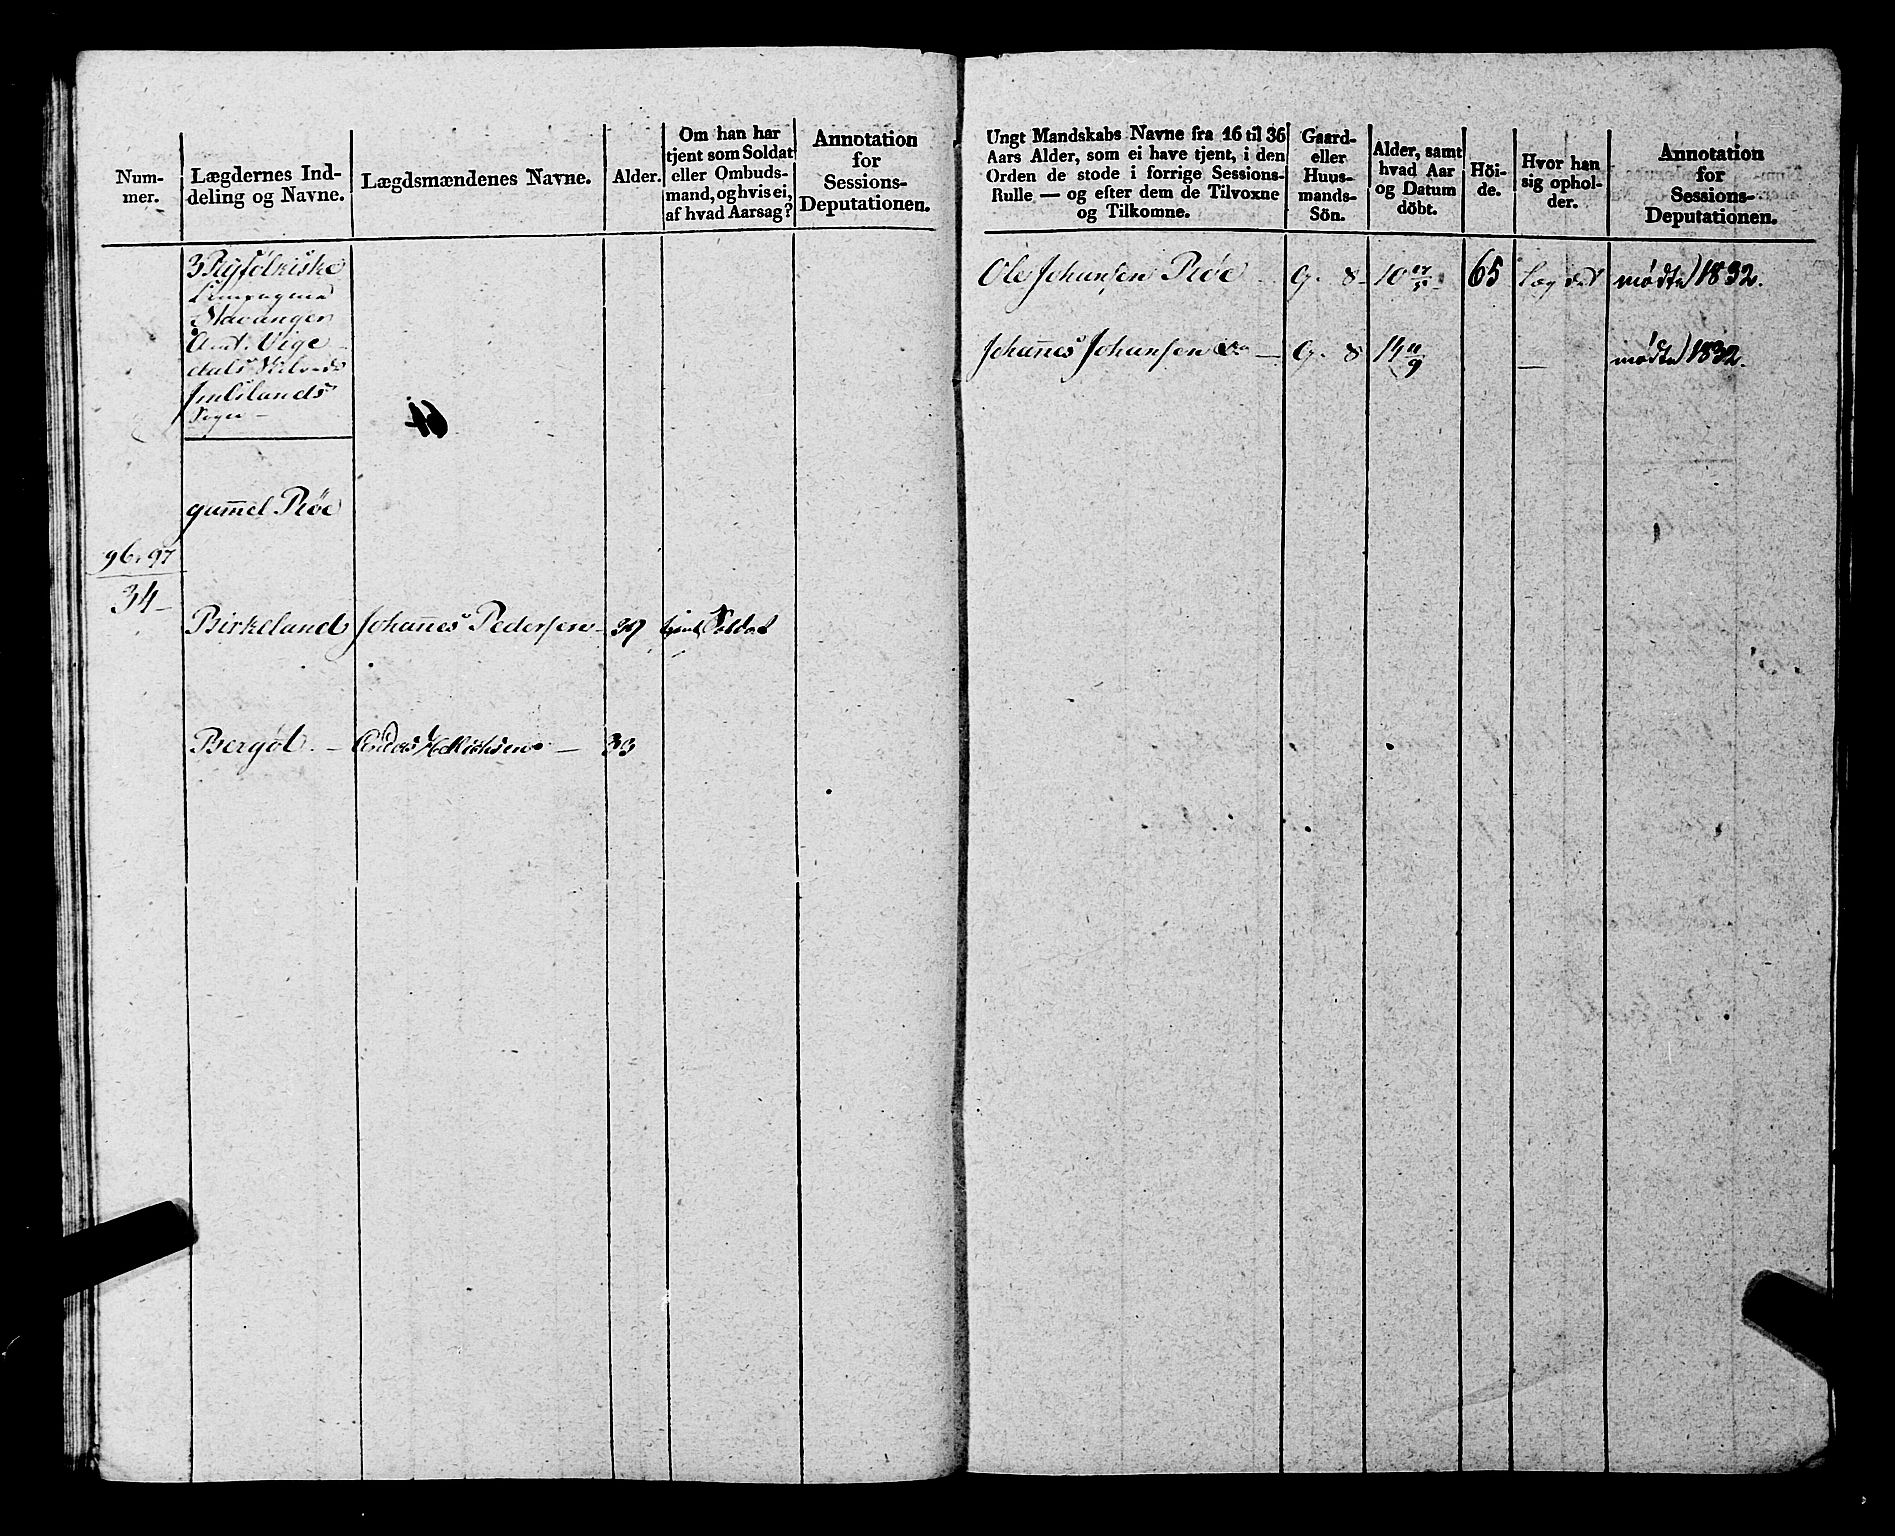 Num-
mer.
Lægdernes Ind-
deling og Navne.
Lægdsmændenes Navne.
Alder.
Om han har
tjent som Soldat
eller Ombuds-
mand, og hvis ei,
af hvad Aarsag?
Annotation
for
Sessions-
Deputationen.
3 Ryfølkiske
Compagnie
Stavanger
Amt. Vige
dals Skibrede
Imslands
Sogn
64
gam̄el Røe
96.97
34
Birkeland Johan̄es Pedersen 39 tjent Soldat
Bergøl. Mikkelsen 33
Ungt Mandskabs Navne fra 16 til 36
Aars Alder, som ei have tjent, i den
Orden de stode i forrige Sessions-
Rulle — og efter dem de Tilvoxne
og Tilkomne.
Gaard-
eller
Huus-
mands-
Sön.
Alder, samt
hvad Aar
og Datum
döbt.
Höi-
de.
Hvor han
sig ophol-
der.
Annotation
for
Sessions-
Deputationen.
Ole Johansen Røe G. 8 10 17/5 65 Lægdet mødte 1832.
Johan̄es Johansen — G. 8 14 11/9 — mødte 1832.